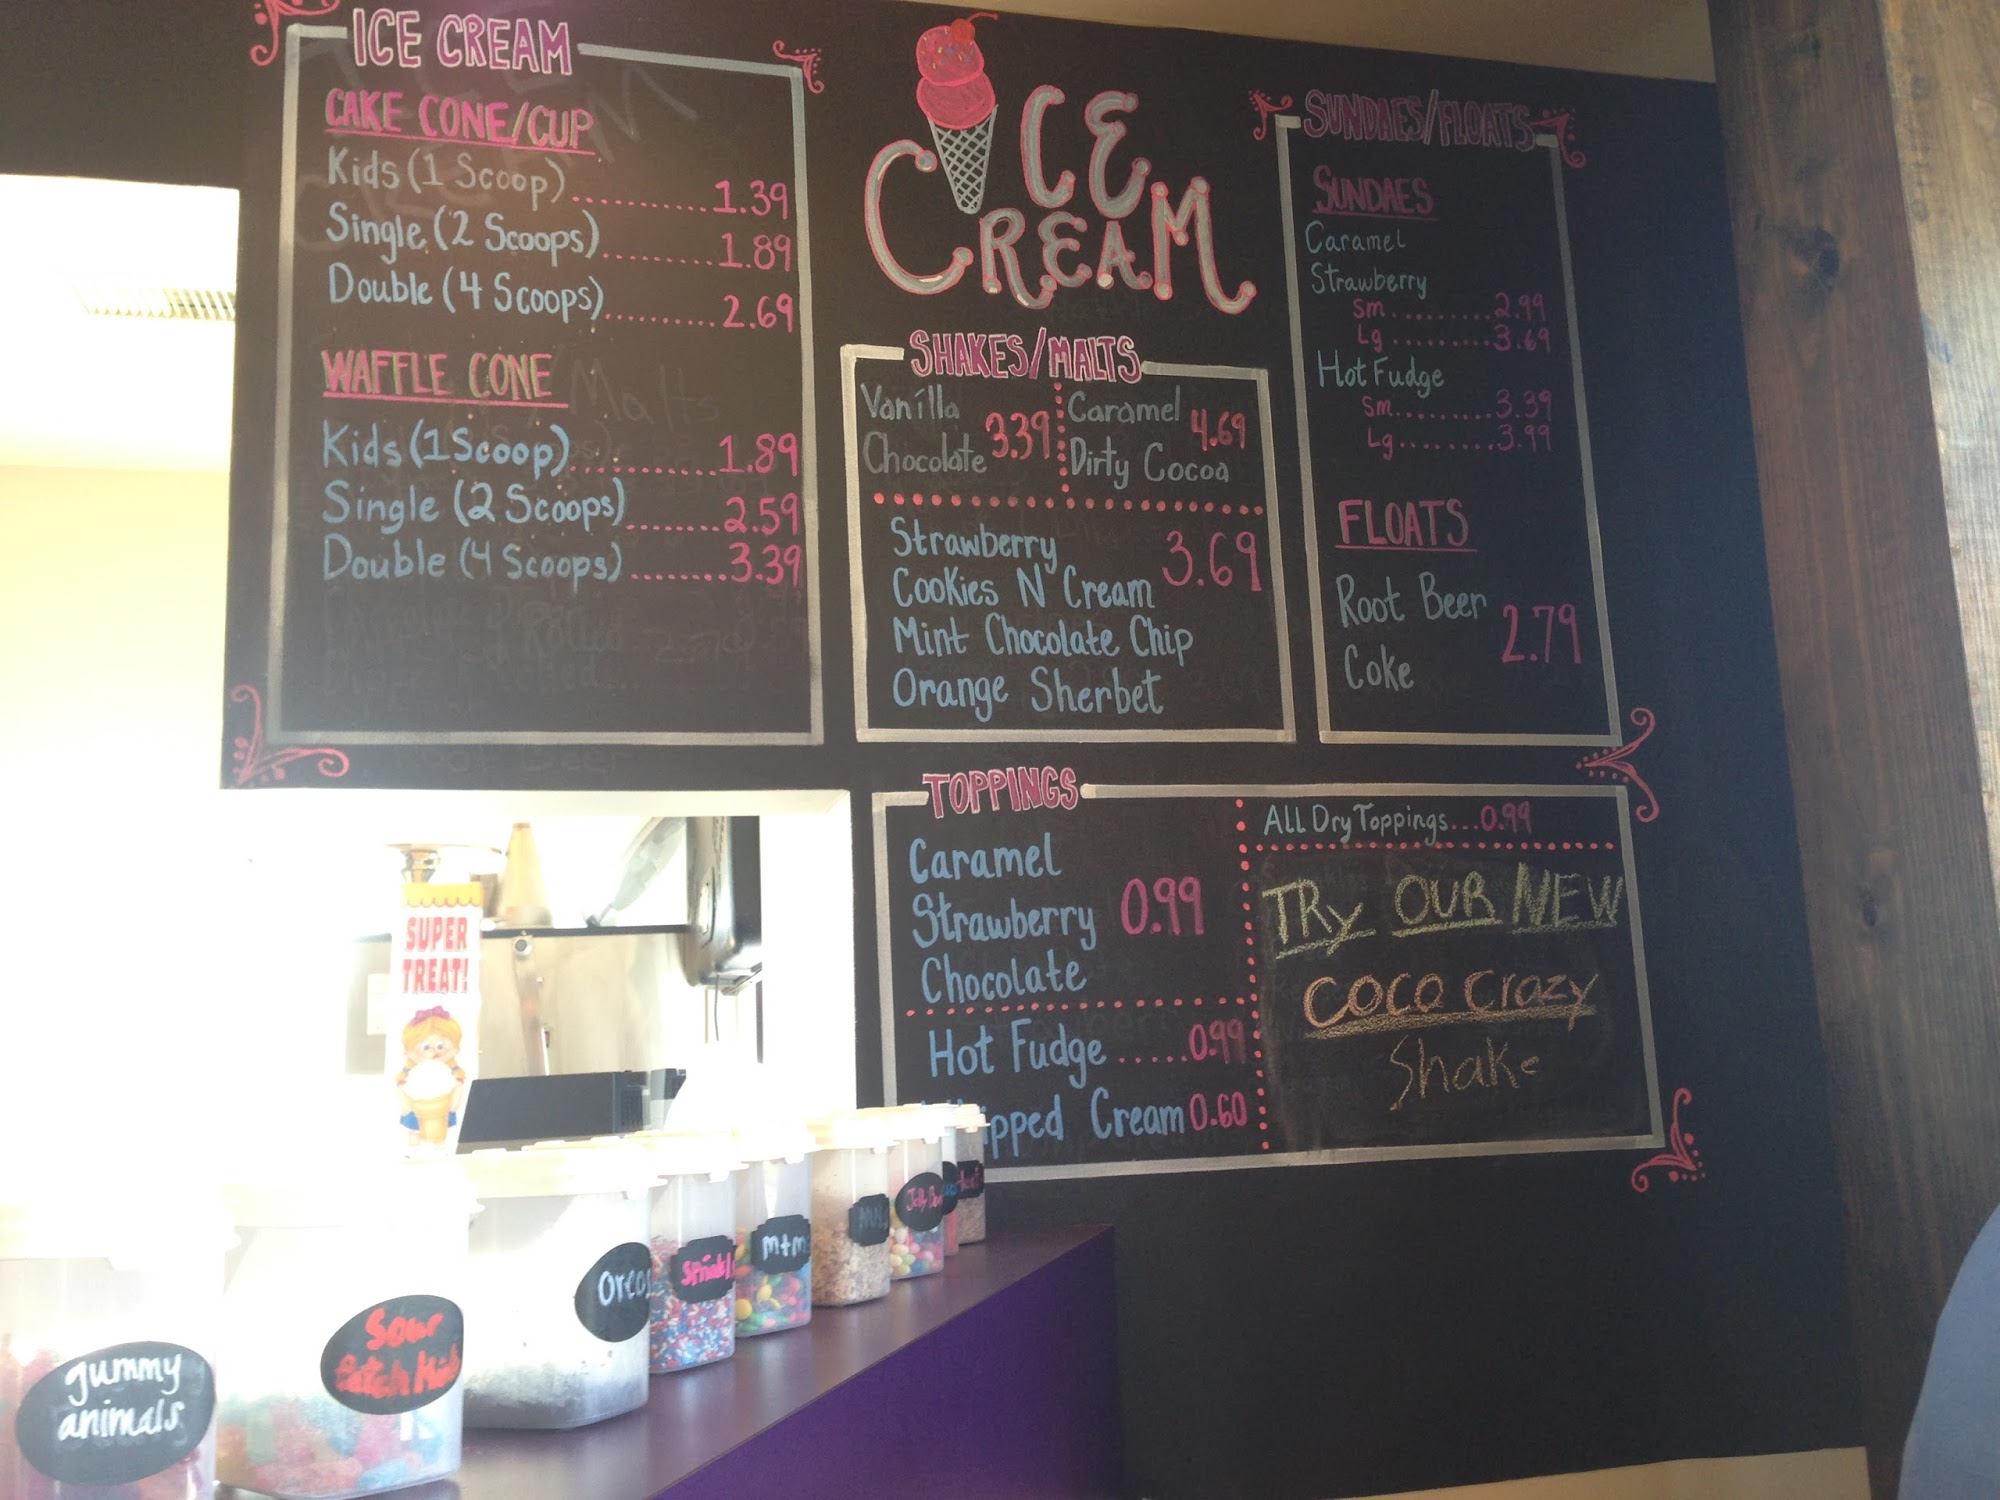 ICE CREAM
CAKE CONE/CUP
Kids (1 Scoop)..........1.39
Single (2 Scoops).......1.89
Double (4 Scoops).......2.69
WAFFLE CONE
Kids (1 Scoop)..........1.89
Single (2 Scoops).......2.59
Double (4 Scoops).......3.39
ICE
CREAM
SHAKES/MALTS
Vanilla
Chocolate 3.39
Caramel
Dirty Cocoa 4.69
Strawberry 3.69
Cookies N Cream
Mint Chocolate Chip
Orange Sherbet
SUNDAES/FLOATS
SUNDAES
Caramel
Strawberry
Sm.........2.99
Lg.........3.69
Hot Fudge
Sm.........3.39
Lg.........3.99
FLOATS
Root Beer
Coke 2.79
TOPPINGS
Caramel
Strawberry 0.99
Chocolate
Hot Fudge ......0.99
Cream 0.60
All Dry Toppings...0.99
TRY OUR NEW
COCO Crazy
Shake
SUPER
TREAT!
gummy
animals
Sour
Patch Kids
Oreos
m+m